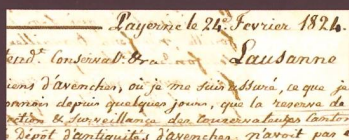 Payerne le 24.e Fevrier 1824.
Conservat. Lausanne
d'avenches, où je me suis assuré, ce que je
depuis quelques jours, que la reserve de
& surveillance des Conservateurs Canton
Dépôt d'antiquités d'avenches, n'avoit pas